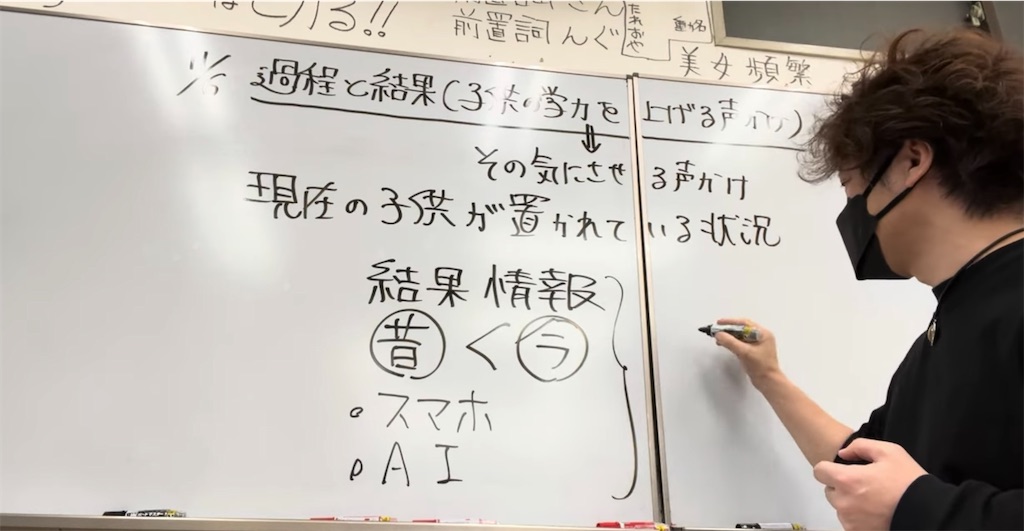 はしりる!!
前置詞 んぐ
美女頻繁
過程と結果(子供の学力を上げる声かけ)
⇓
その気にさせる声かけ
現在の子供が置かれている状況
結果 情報
昔 < 今
・スマホ
・AI